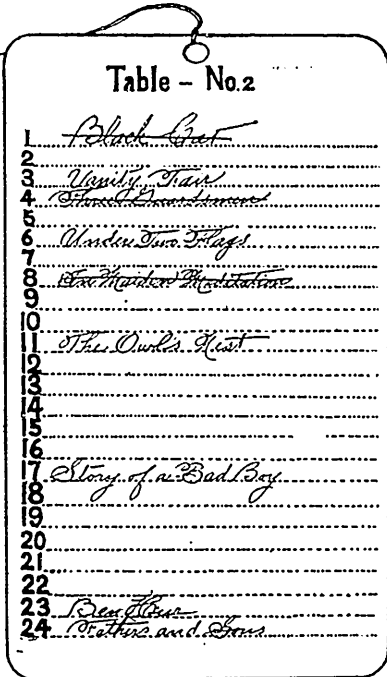 Table - No.2
1 Black Cat
2
3 Vanity Fair
4 Three Guardsmen
5
6 Under Two Flags
7
8 In Maiden Meditation
9
10
11 The Owl's Nest
12
13
14
15
16
17 Story of a Bad Boy
18
19
20
21
22
23 Ben Hur
24 Fathers and Sons